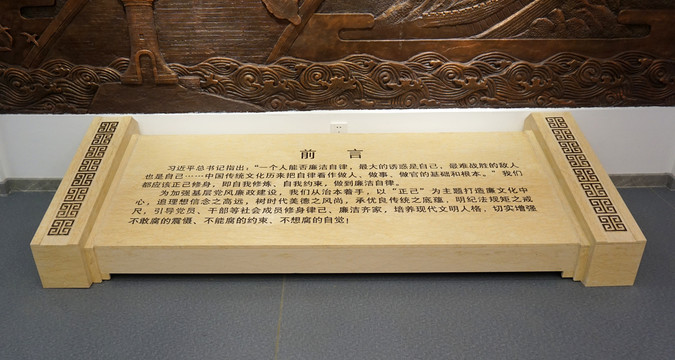 前 言
习近平总书记指出："一个人能否廉洁自律，最大的诱惑是自己，最难战胜的敌人
也是自己……中国传统文化历来把自律看作做人、做事、做官的基础和根本。"我们
都应该正己修身，即自我修炼、自我约束，做到廉洁自律。
为加强基层党风廉政建设，我们从治本着手，以"正己"为主题打造廉文化中
心，追理想信念之高远，树时代美德之风尚，承优良传统之底蕴，明纪法规矩之戒
尺，引导党员、干部等社会成员修身律己、廉洁齐家，培养现代文明人格，切实增强
不敢腐的震慑、不能腐的约束、不想腐的自觉！